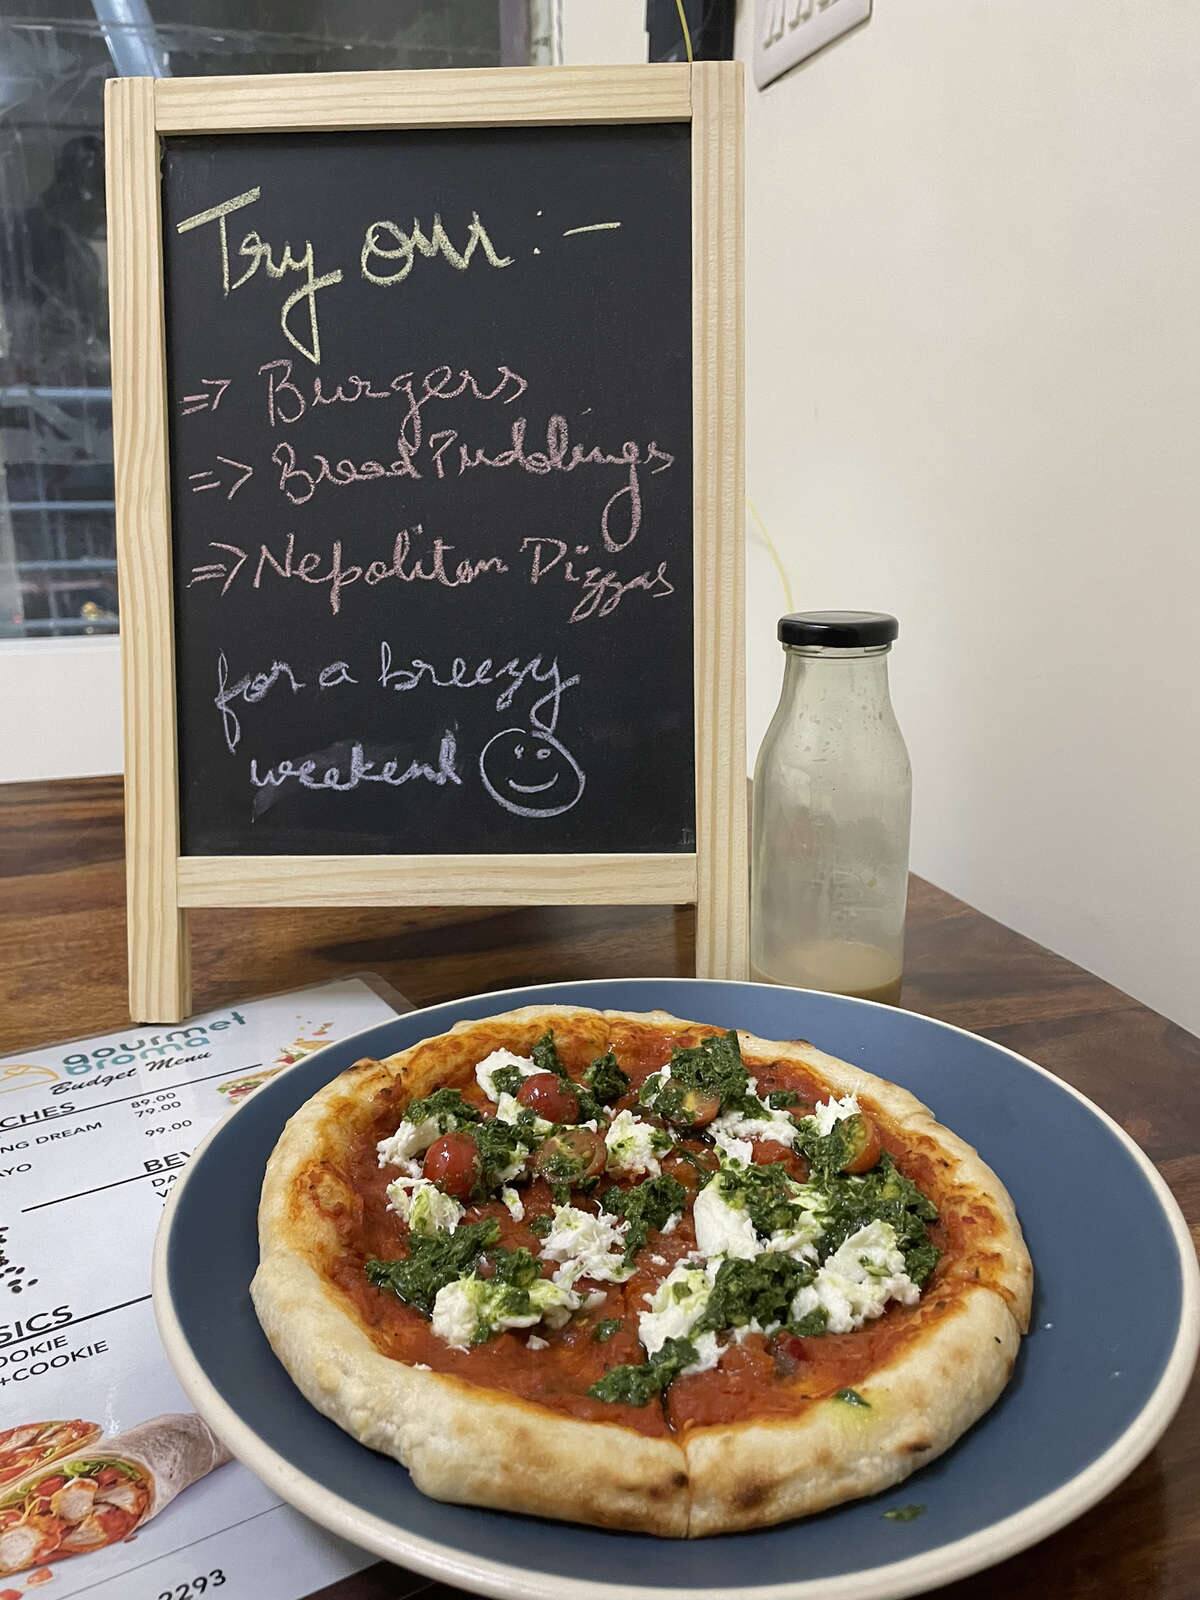 Try our :-
=> Burgers
=> Bread Puddings
=> Nepolitan Pizzas
for a breezy
weekend
gourmet
aroma
Budget Menu
CHES
89.00
79.00
NG DREAM
99.00
AYO
BEV
DA
SICS
OOKIE
+COOKIE
2293